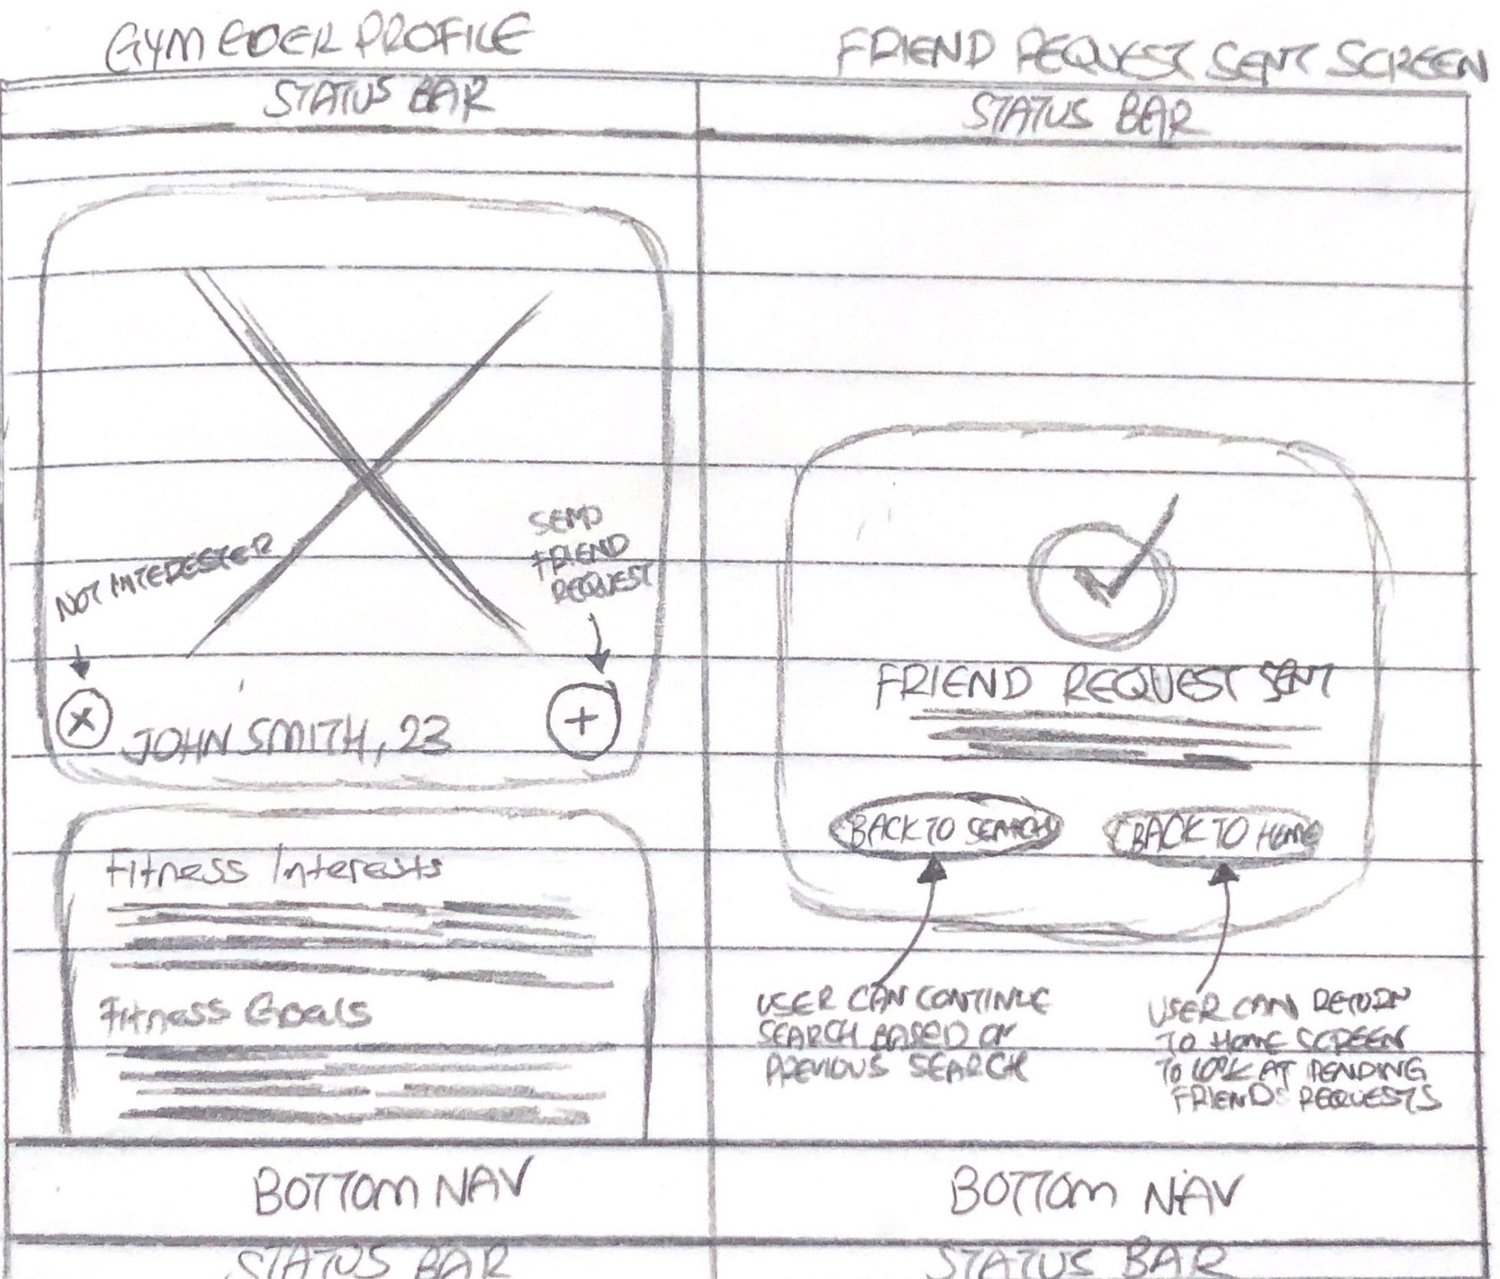 GYM GOER PROFILE
STATUS BAR
NOT INTERESTED
SEND
FRIEND
REQUEST
X
JOHN SMITH, 23
+
Fitness Interests
Fitness Goals
BOTTOM NAV
STATUS BAR
FRIEND REQUEST SENT SCREEN
STATUS BAR
FRIEND REQUEST SENT
BACK TO SEARCH
BACK TO HOME
USER CAN CONTINUE
SEARCH BASED ON
PREVIOUS SEARCH
USER CAN RETURN
TO HOME SCREEN
TO LOOK AT PENDING
FRIENDS REQUESTS
BOTTOM NAV
STATUS BAR